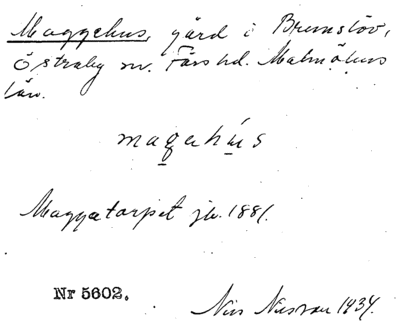 Maggehus, gård i Brunslöv,
Östraby sn. Färs hd. Malmöhus
län.
magahús
Maggatorpet jb. 1881.
Nr 5602.
Nils 1934.